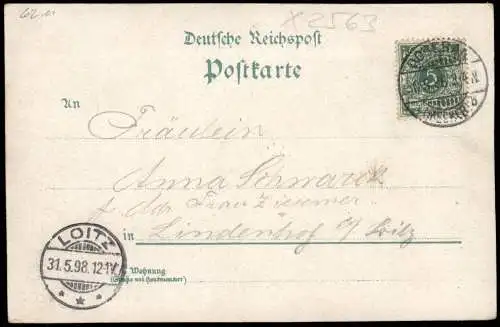 x 2563
Deutsche Reichspost
Postkarte
An
5
Fräulein
Anna Schwarck
in Lindenhof b/ Loitz
LOITZ
31.5.98.12-1N.
Wohnung
(Straße und Hausnummer)